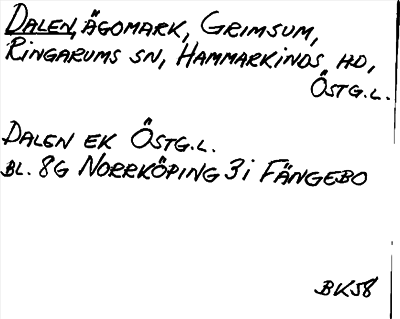 DALEN, ÄGOMARK, GRIMSUM,
RINGARUMS SN, HAMMARKINDS HD,
ÖSTG.L.
DALEN EK ÖSTG.L.
BL. 8G NORRKÖPING 3i FÄNGEBO
BK58